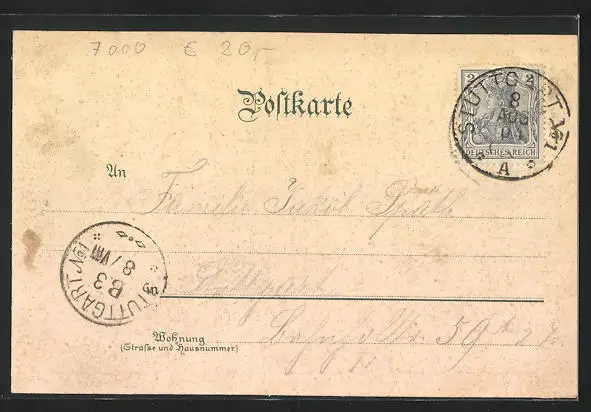 7000 € 20,-
Postkarte
2 2
STUTTGART No 1
8
AUG
A
DEUTSCHES REICH
An
Familie Jakob
STUTTGART No
8/VIII
B3
in
Stuttgart
Wohnung
(Strasse und Hausnummer)
59